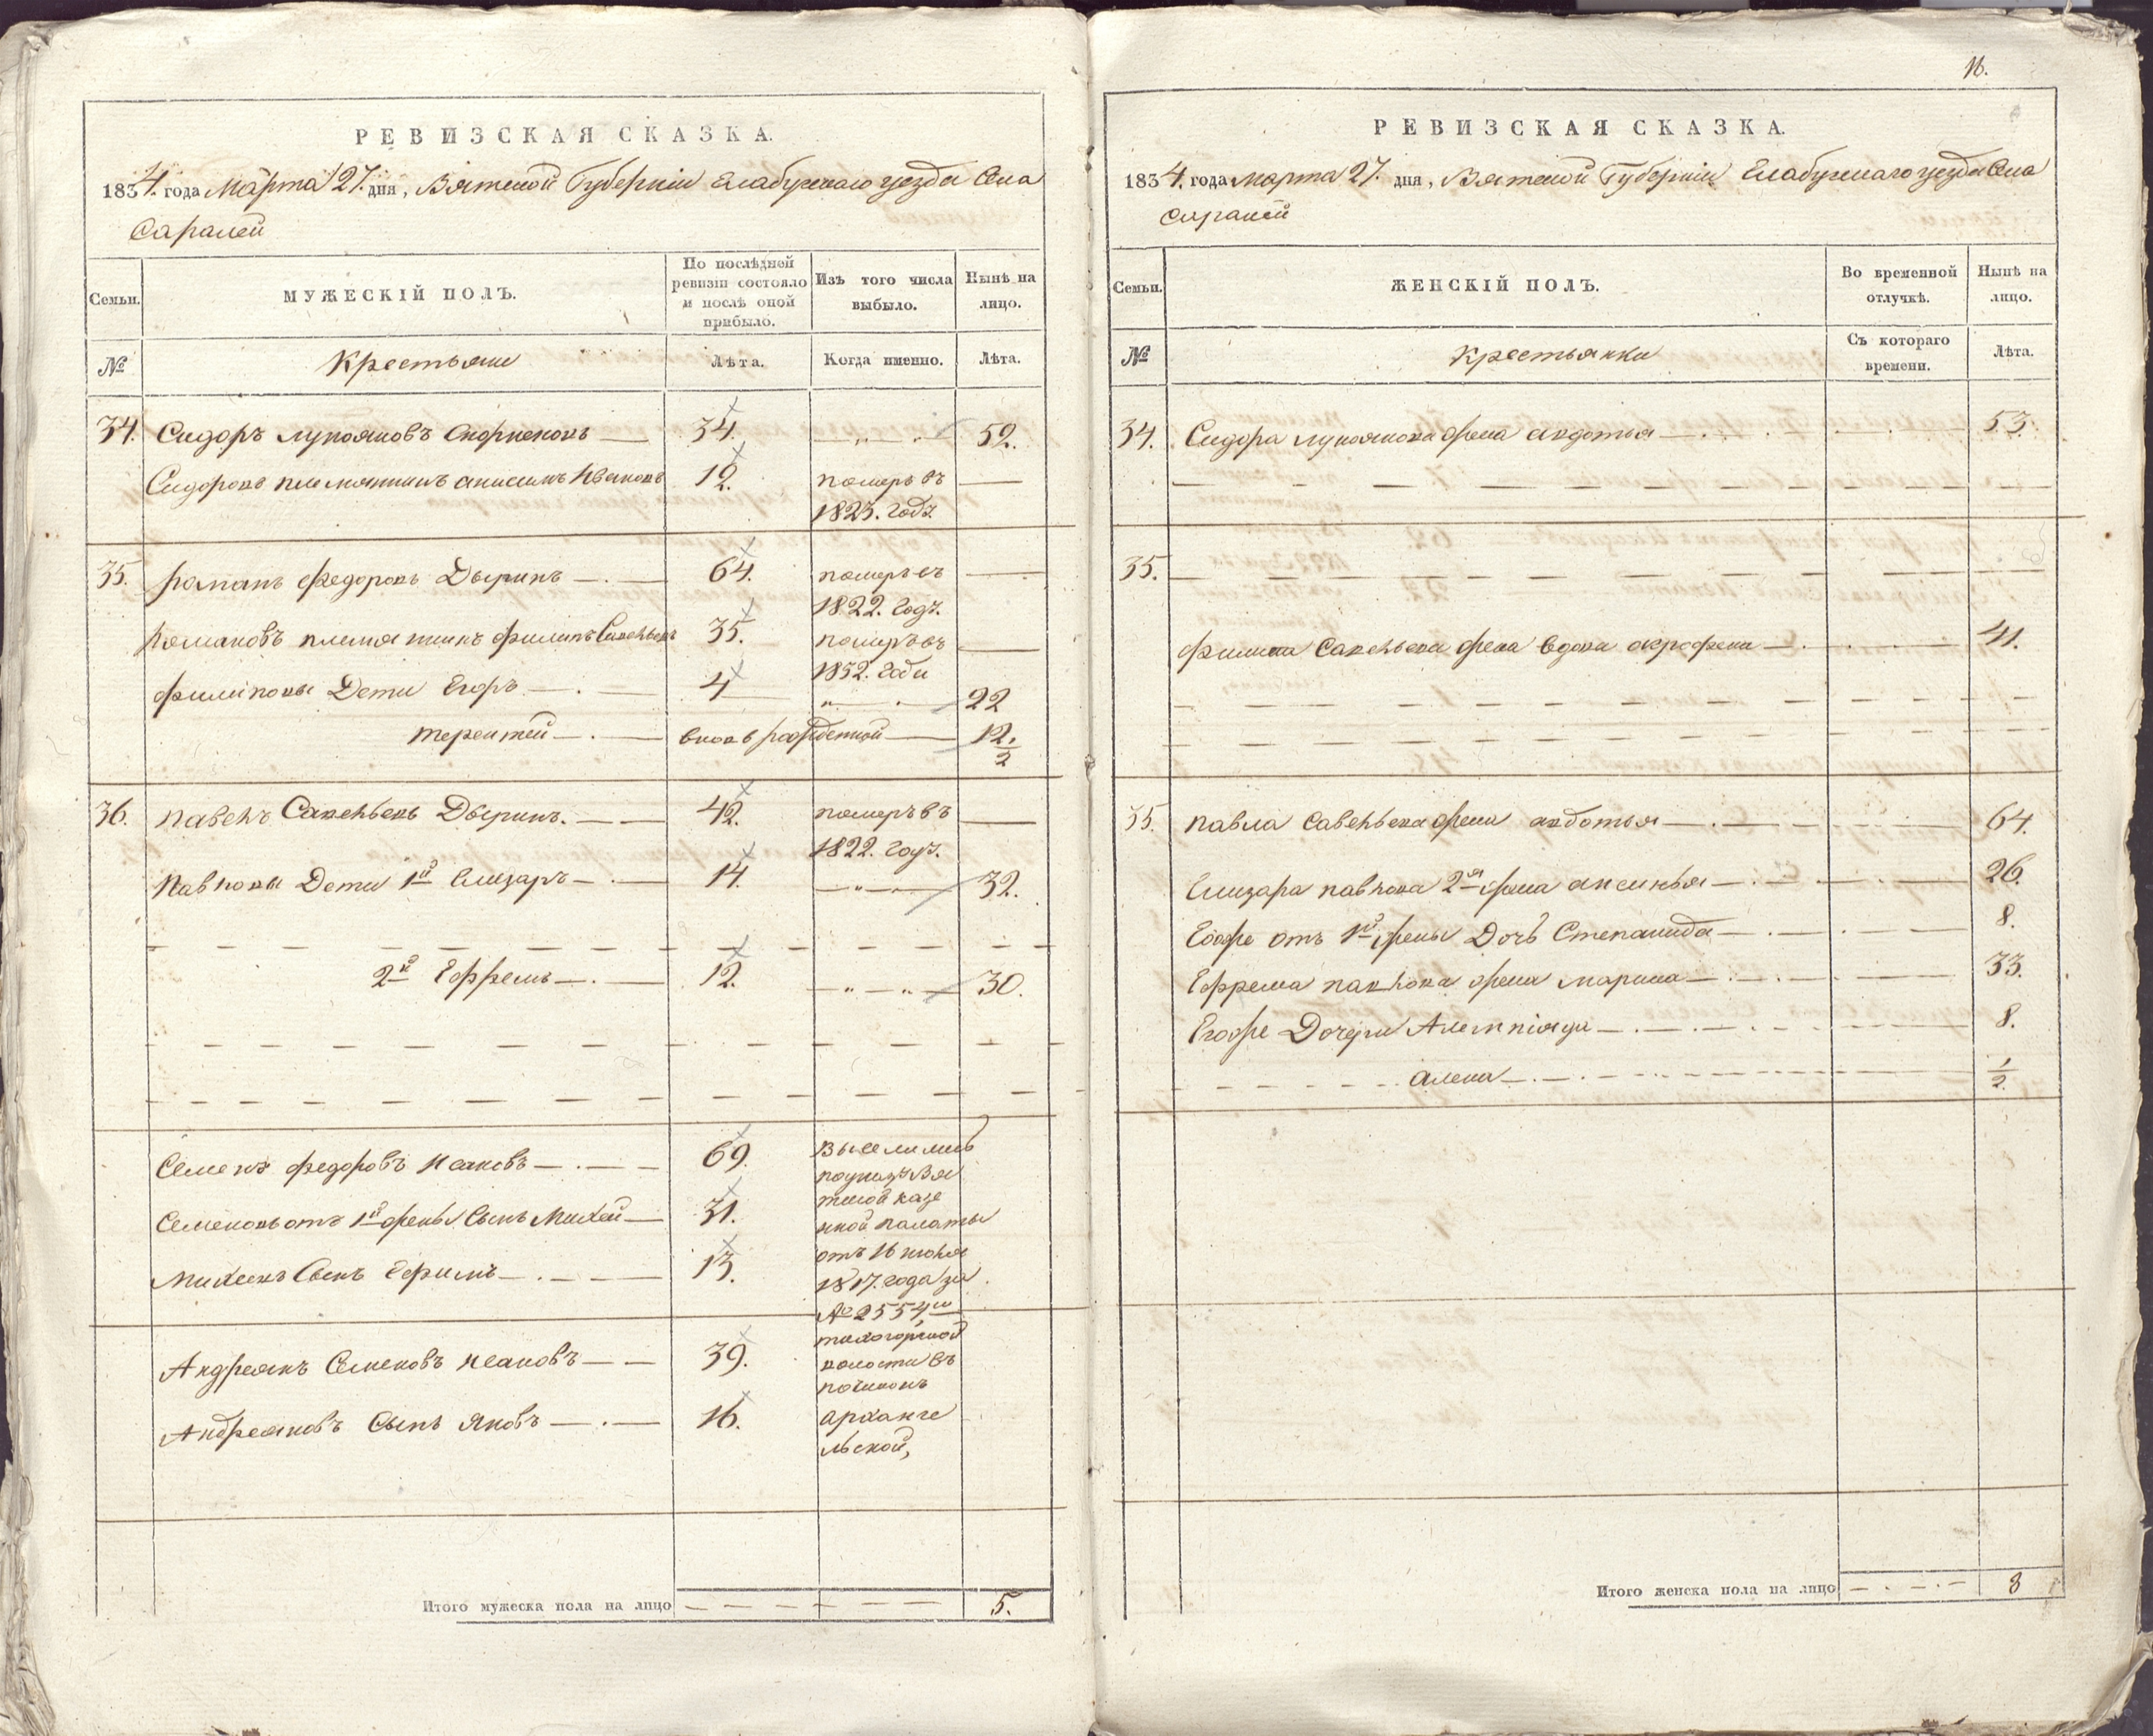 РЕВИЗСКАЯ СКАЗКА.
1834. года Марта 27. дня, Вятской Губернии Елабужскаго уезда Села
Саралей
Семьи.
МУЖЕСКІЙ ПОЛЪ.
По послѣдней ревизіи состояло и послѣ оной прибыло.
Изъ того числа выбыло.
Нынѣ на лицо.
№
Крестьяне
Лѣта.
Когда именно.
Лѣта.
34. Сидоръ Лукояновъ 34. 52.
Сидоровъ племянникъ анисимъ Ивановъ 12. померъ въ
1823. годъ.
35. романъ Федоровъ Дыринъ 64. померъ въ
1822. годъ.
Романовъ племянникъ филипъ Савельевъ 35. померъ въ
1832. годи
филиповы Дети Егоръ 4 22
терентей вновь рожденной 12 1/2
36. павелъ Савельевъ Дыринъ. 42. померъ въ
1822. годъ.
Павловы Дети 1й Елизаръ 14. 32.
2й Ефремъ 12. 30.
Семенъ федоровъ Исаковъ 69. выселились
поуказу Вя
Семеновъ отъ 1й жены Сынъ Михей 31. тской казе
нной палаты
Михеевъ Сынъ Ефимъ 13. отъ 16 июня
1817. года за
№ 2554м
Андреянъ Семеновъ Исаковъ 39. тихогорской
волости въ
починокъ
Андреяновъ Сынъ Яковъ 16. арханге
льской,
Итого мужеска пола на лицо 5.
16.
РЕВИЗСКАЯ СКАЗКА.
1834. года марта 27. дня, Вятской Губернии Елабужскаго уезда Села
Саралей
Семьи.
ЖЕНСКІЙ ПОЛЪ.
Во временной отлучкѣ.
Нынѣ на лицо.
№
Крестьянки
Съ котораго времени.
Лѣта.
34. Сидора лукоянова жена авдотья 53.
35.
филипа Савельева жена вдова аграфена 41.
35. павла Савельева жена авдотья 64.
Елизара павлова 2я жена аксинья 26.
Егоже отъ 1й жены Дочь Степанида 8.
Ефрема павлова жена марина 33.
Егоже Дочери Алемпіяда 8.
алена 1/2.
Итого женска пола на лицо 8